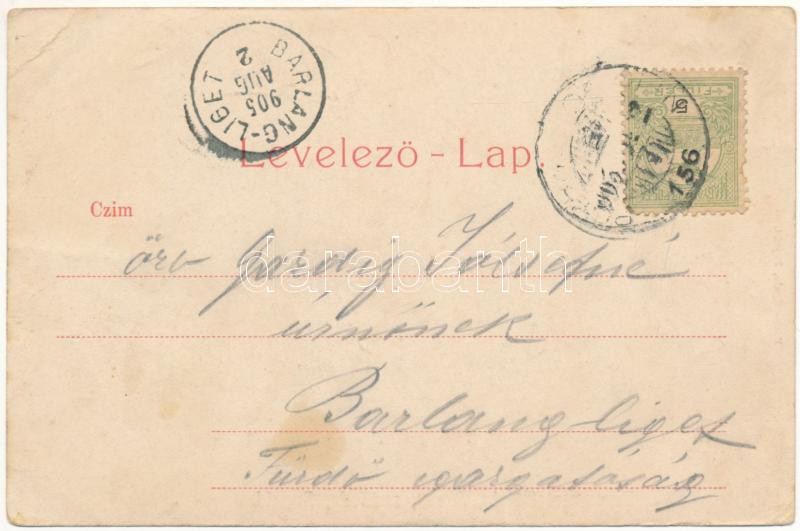 BARLANG-LIGET
905
AUG
2
Levelező - Lap.
FILLÉR
5
156
Czim
özv Józsefné
úrnőnek
Barlangliget
Fürdő igazgatóság
darabanth